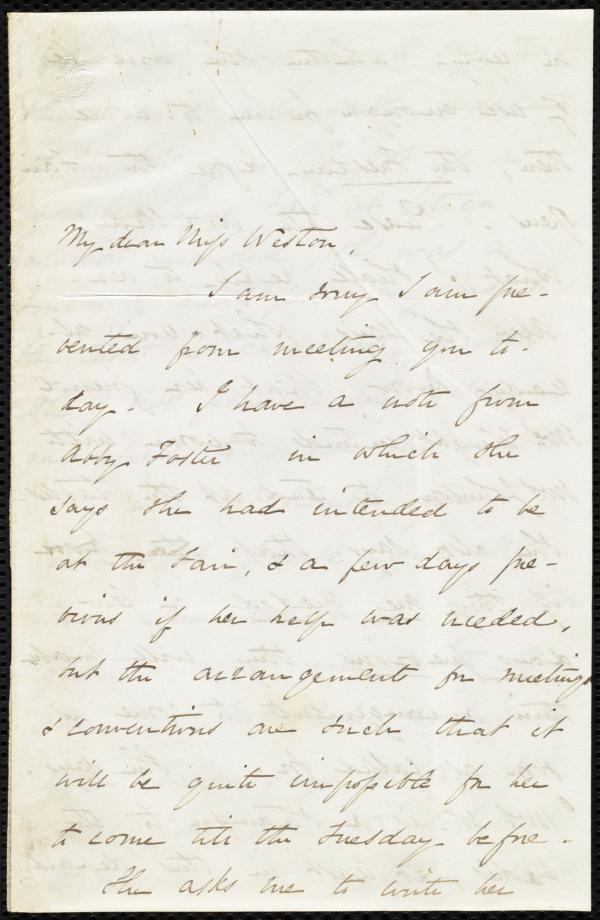 My dear Miss Weston,
I am sorry I am pre-
vented from meeting you to-
day. I have a note from
Abby Foster in which she
says she had intended to be
at the Fair, & a few days pre-
vious if her help was needed,
but the arrangements for meetings
& conventions are such that it
will be quite impossible for her
to come till the Tuesday before.
She asks me to write her